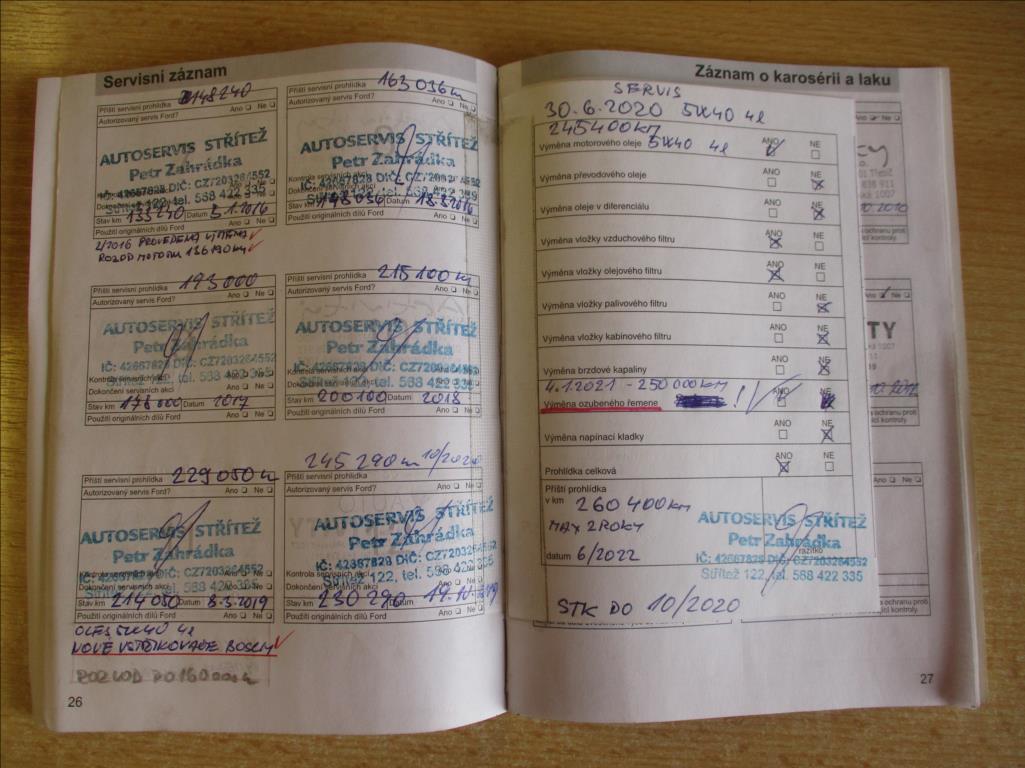 Servisní záznam
Příští servisní prohlídka 148240
Autorizovaný servis Ford? Ano Ne
AUTOSERVIS STŘÍTEŽ
Petr Zahrádka
IČ: 42667828 DIČ: CZ7203264552
Dokončení servisních akcí
Střítež 122, tel. 588 422 335
Stav km 133240 Datum 5.1.2016
Použití originálních dílů Ford Ano Ne
2/2016 PROVEDENA VÝMĚNA
ROZVOD MOTORU 136190km
Příští servisní prohlídka 163036km
Autorizovaný servis Ford? Ano Ne
AUTOSERVIS STŘÍTEŽ
Petr Zahrádka
Stav km 148036 Datum 18.8.2016
Použití originálních dílů Ford Ano Ne
Příští servisní prohlídka 193000
Autorizovaný servis Ford? Ano Ne
AUTOSERVIS STŘÍTEŽ
Petr Zahrádka
IČ: 42667828 DIČ: CZ7203264552
Kontrola servisních akcí
Dokončení servisních akcí
Střítež 122, tel. 588 422 335
Stav km 178000 Datum 2017
Použití originálních dílů Ford Ano Ne
Příští servisní prohlídka 215100km
Autorizovaný servis Ford? Ano Ne
AUTOSERVIS STŘÍTEŽ
Petr Zahrádka
IČ: 42667828 DIČ: CZ7203264552
Střítež 122, tel. 588 422 335
Stav km 200100 Datum 2018
Použití originálních dílů Ford Ano Ne
Příští servisní prohlídka 229050
Autorizovaný servis Ford? Ano Ne
AUTOSERVIS STŘÍTEŽ
Petr Zahrádka
IČ: 42667828 DIČ: CZ7203264552
Kontrola servisních akcí
Dokončení servisních akcí
Střítež 122, tel. 588 422 335
Stav km 214050 Datum 8-3-2019
Použití originálních dílů Ford Ano Ne
OLEJ 5W40 4l
NOVÉ VSTŘIKOVAČE BOSCH
ROZVOD DO 160000km
245 290 km 10/2020
Příští servisní prohlídka
Autorizovaný servis Ford? Ano Ne
AUTOSERVIS STŘÍTEŽ
Petr Zahrádka
IČ: 42667828 DIČ: CZ7203264552
Kontrola servisních akcí
Dokončení servisních akcí
Střítež 122, tel. 588 422 335
Stav km 230290 Datum 19-10-2019
Použití originálních dílů Ford Ano Ne
26
Záznam o karosérii a laku
SERVIS
30.6.2020 5W40 4l
245400km
Výměna motorového oleje 5W40 4l ANO NE
Výměna převodového oleje ANO NE
Výměna oleje v diferenciálu ANO NE
Výměna vložky vzduchového filtru ANO NE
Výměna vložky olejového filtru ANO NE
Výměna vložky palivového filtru ANO NE
Výměna vložky kabinového filtru ANO NE
Výměna brzdové kapaliny ANO NE
4.1.2021 - 250 000km
Výměna ozubeného řemene ! ANO NE
Výměna napínací kladky ANO NE
Prohlídka celková ANO NE
Příští prohlídka
v km 260 400km
MAX 2 ROKY
datum 6/2022
AUTOSERVIS STŘÍTEŽ
Petr Zahrádka
razítko
IČ: 42667828 DIČ: CZ7203264552
Střítež 122, tel. 588 422 335
STK DO 10/2020
27